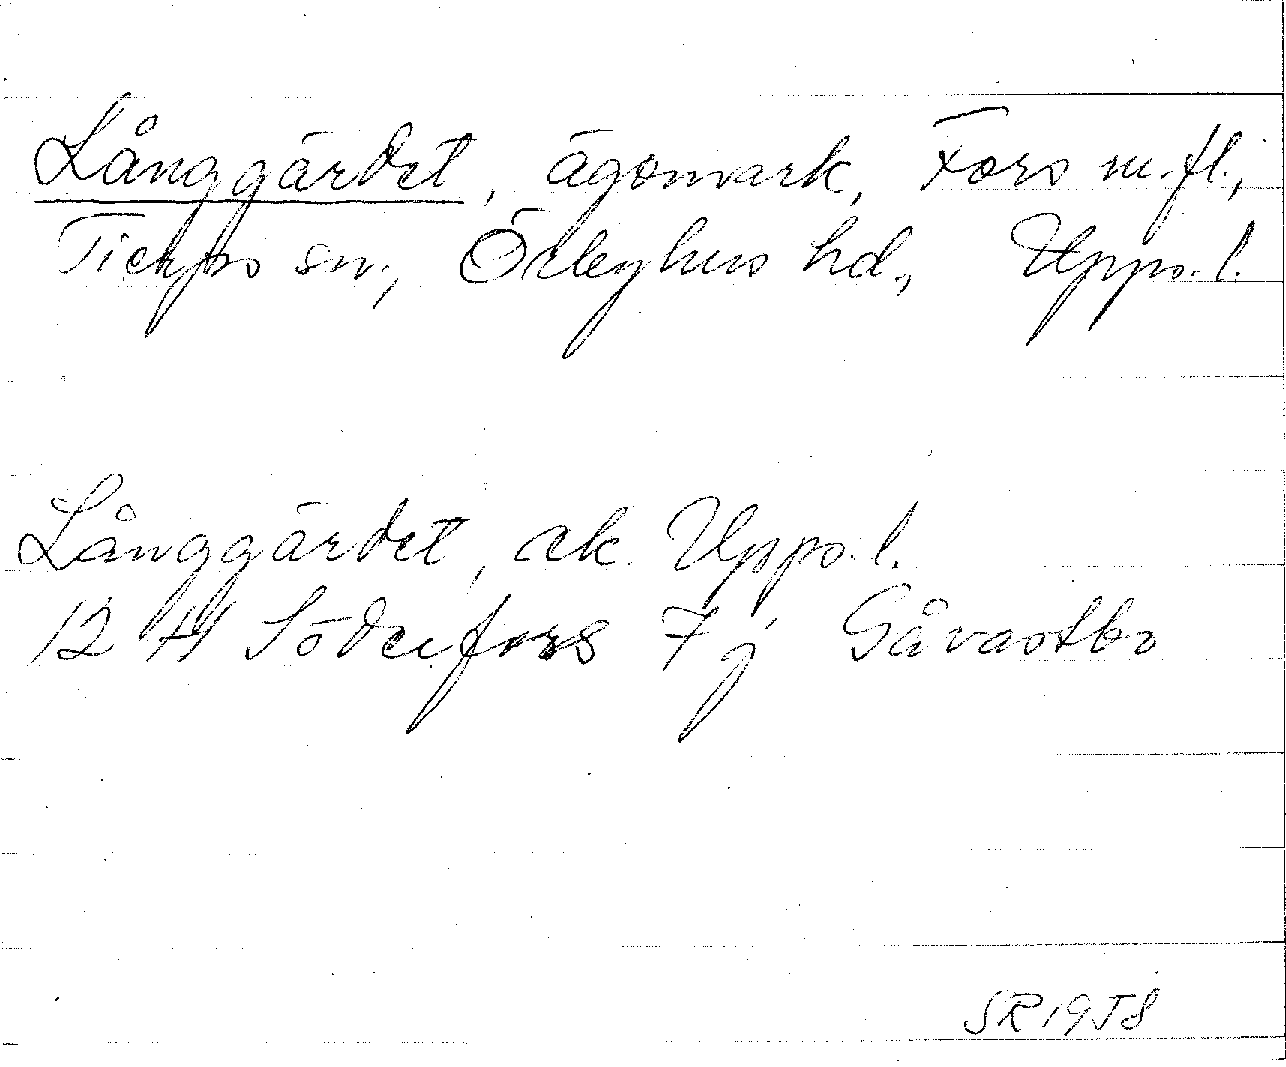 Långgärdet, ägomark, Fors m.fl.,
Tierps sn., Örbyhus hd., Upps.l.
Långgärdet, ek. Upps.l.
12 H Söderfors 7 j Gåvastbo
SR 1958